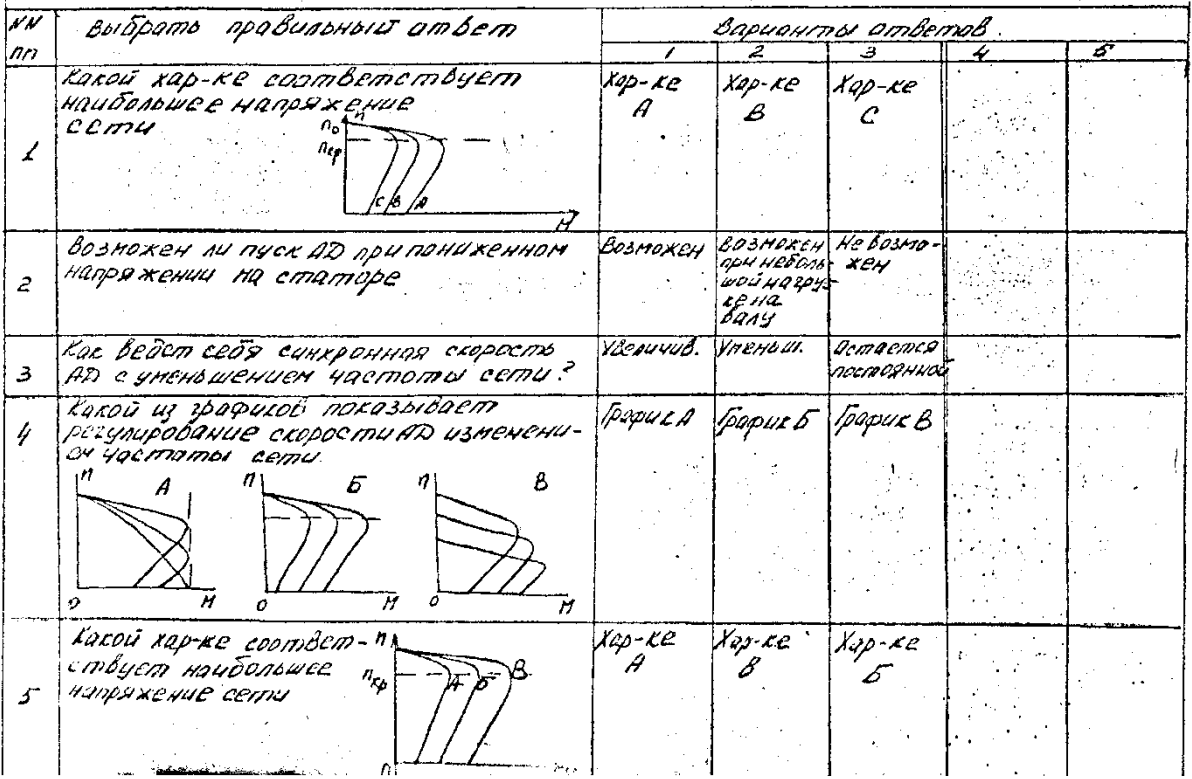 NN пп
Выбрать правильный ответ
Варианты ответов.
1 2 3 4 5
1
Какой хар-ке соответствует
наибольшее напряжение
сети
n
n₀
nкр
C B A
M
Хар-ке
А
Хар-ке
В
Хар-ке
С
2
Возможен ли пуск АД при пониженном
напряжении на статоре
Возможен
Возможен
при неболь-
шой нагруз-
ке на
валу
Не возмо-
жен
3
Как ведёт себя синхронная скорость
АД с уменьшением частоты сети?
Увеличив.
Уменьш.
Остается
постоянной
4
Какой из графиков показывает
регулирование скорости АД изменени-
ем частоты сети.
График А
График Б
График В
n А n Б n В
0 M 0 M 0 M
5
Какой хар-ке соответ-
ствует наибольшее
напряжение сети
n
nкр
А Б В
0
Хар-ке
А
Хар-ке
В
Хар-ке
Б